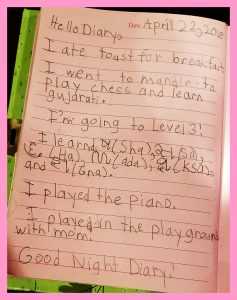 Hello Diary,
Date: April 22,
I ate toast for breakfast
I went to mandir to
play chess and learn
gujarati.
I'm going to Level 3!
I learnd (Sha), (Sa),
(Ha), (ada), (ksa),
and (Gna).
I played the piano.
I played in the playground
with mom.
Good Night Diary!